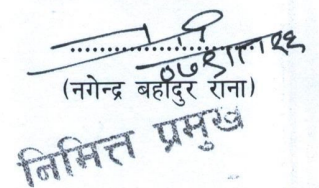 (नगेन्द्र बहादुर राना)
निमित्त प्रमुख